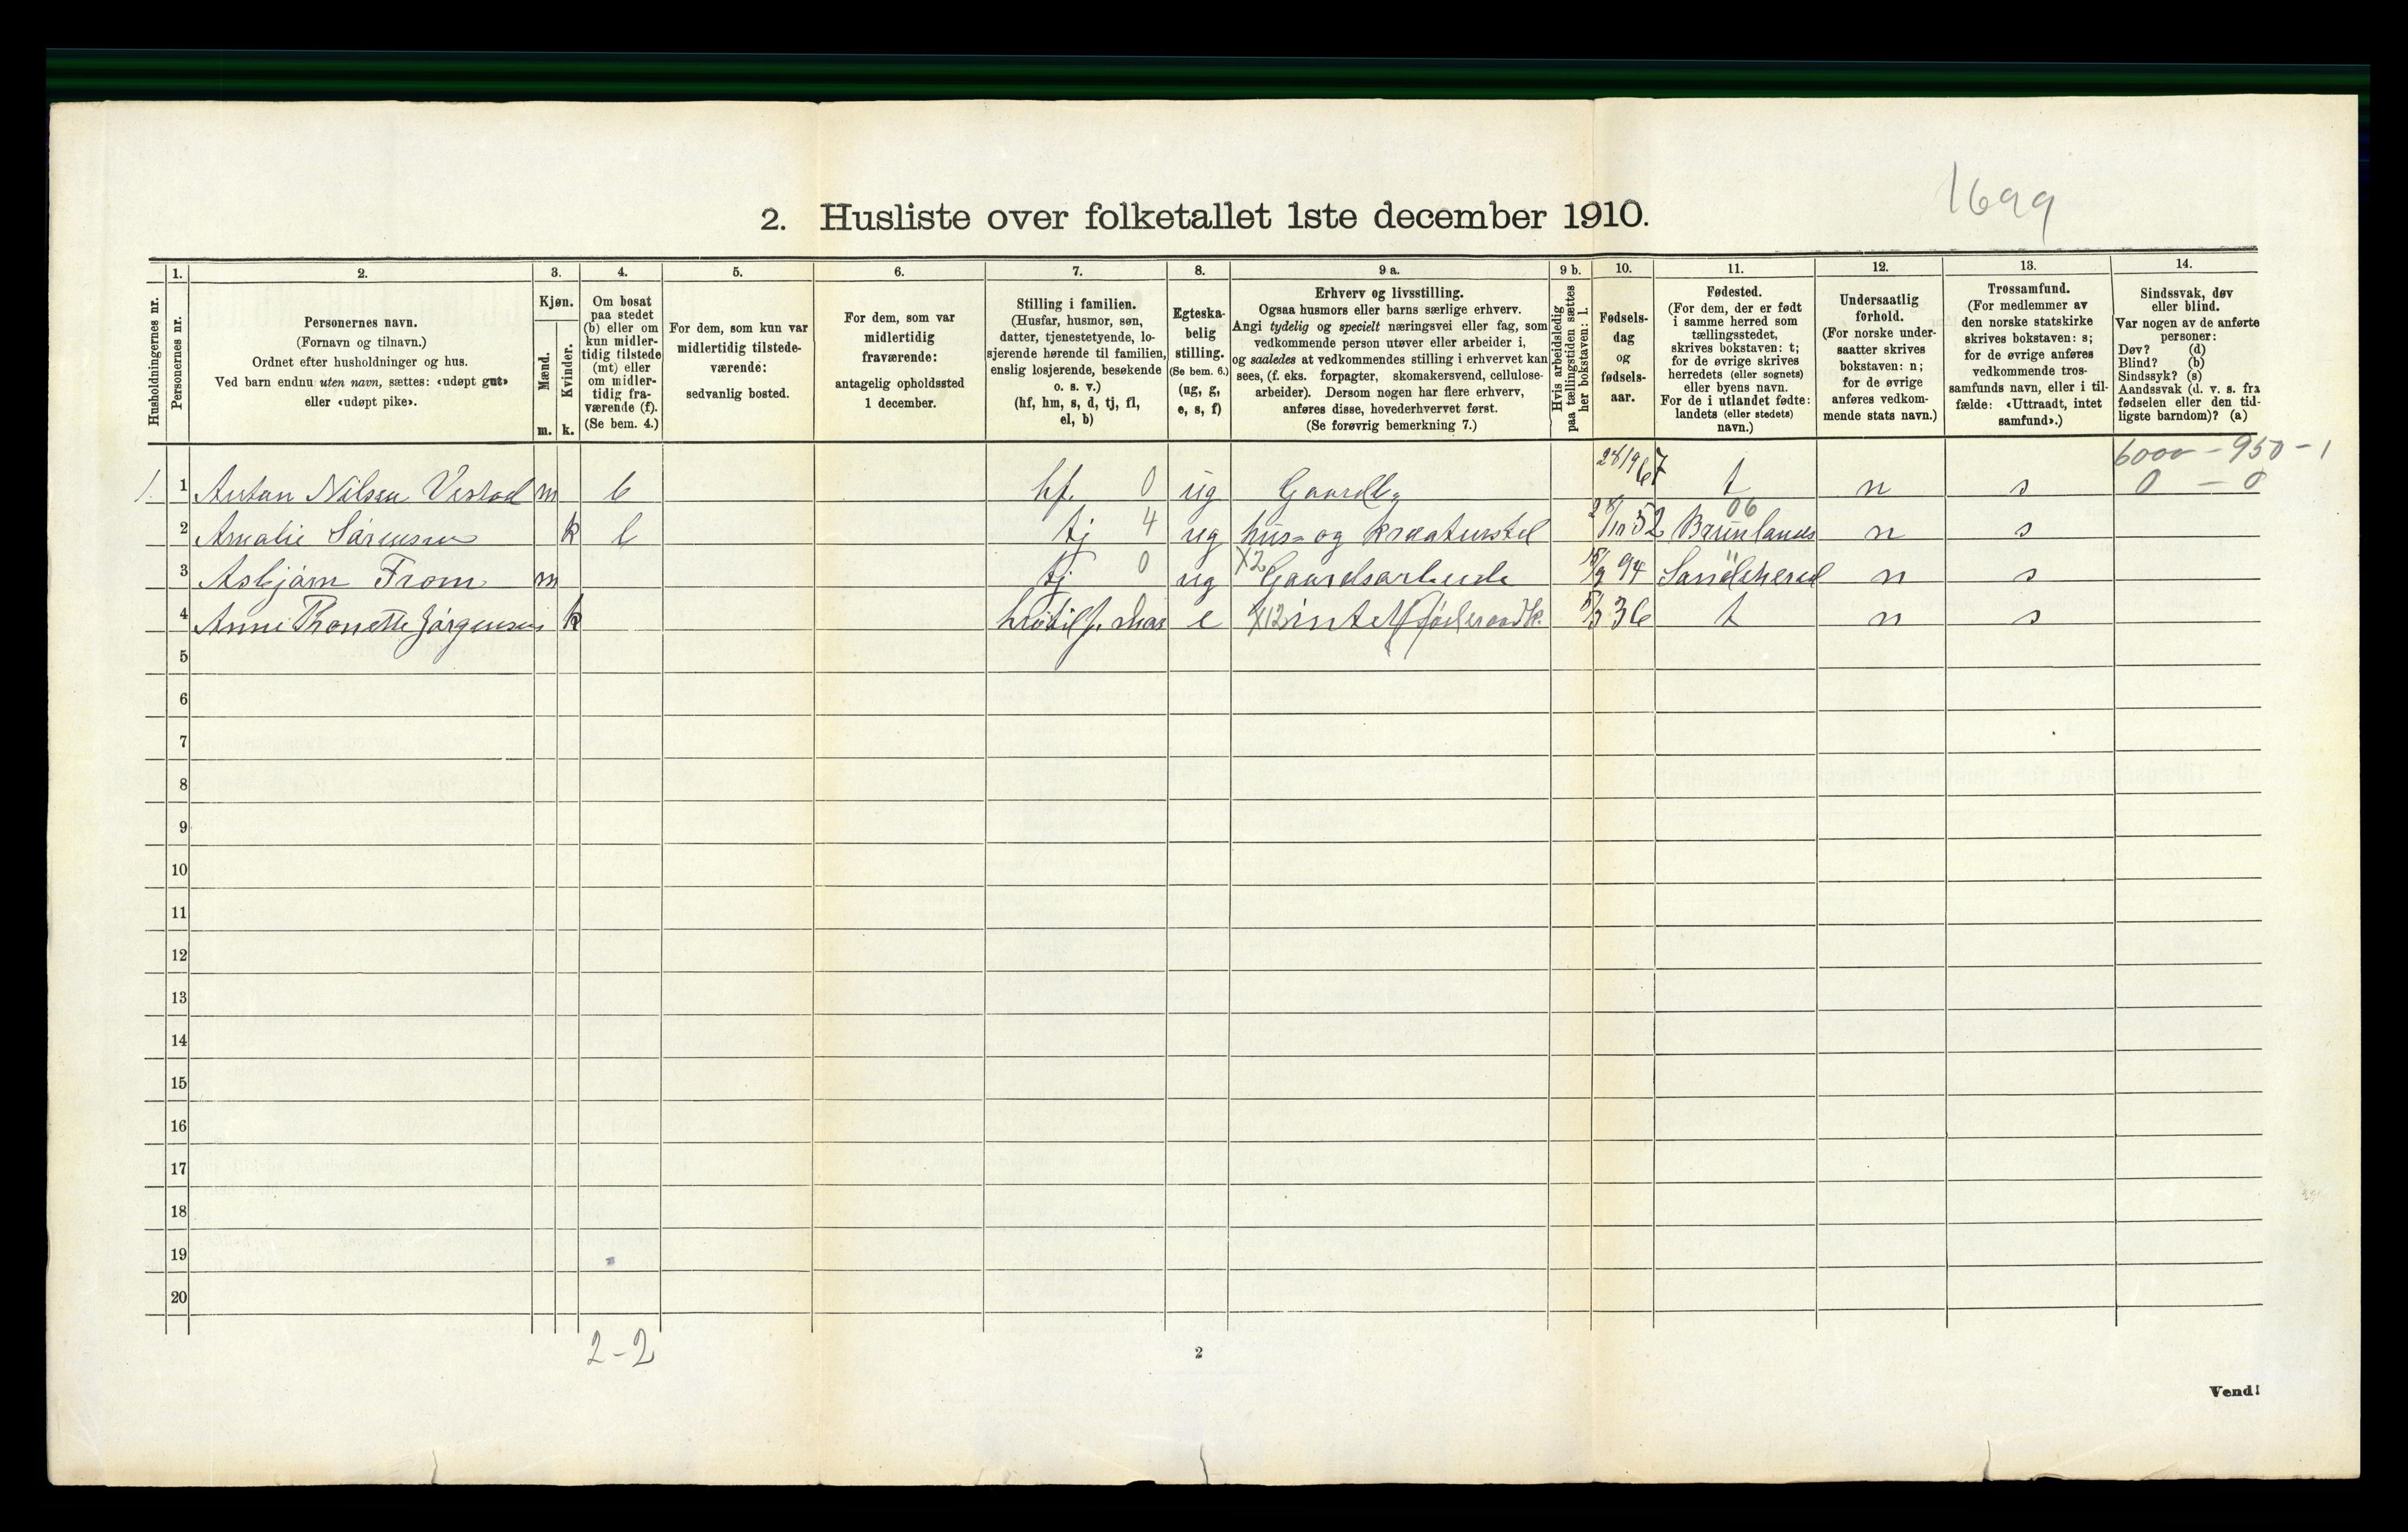 1699
2. Husliste over folketallet 1ste december 1910.
Husholdningernes nr.
1. Personernes nr.
2. Personernes navn.
(Fornavn og tilnavn.)
Ordnet efter husholdninger og hus.
Ved barn endnu uten navn, sættes: «udøpt gut»
eller «udøpt pike».
3. Kjøn.
Mænd. m.
Kvinder. k.
4. Om bosat
paa stedet
(b) eller om
kun midler-
tidig tilstede
(mt) eller
om midler-
tidig fra-
værende (f).
(Se bem. 4.)
5. For dem, som kun var
midlertidig tilstede-
værende:
sedvanlig bosted.
6. For dem, som var
midlertidig
fraværende:
antagelig opholdssted
1 december.
7. Stilling i familien.
(Husfar, husmor, søn,
datter, tjenestetyende, lo-
sjerende hørende til familien,
enslig losjerende, besøkende
o. s. v.)
(hf, hm, s, d, tj, fl,
el, b)
8. Egteska-
belig
stilling.
(Se bem. 6.)
(ug, g,
e, s, f)
9 a. Erhverv og livsstilling.
Ogsaa husmors eller barns særlige erhverv.
Angi tydelig og specielt næringsvei eller fag, som
vedkommende person utøver eller arbeider i,
og saaledes at vedkommendes stilling i erhvervet kan
sees, (f. eks. forpagter, skomakersvend, cellulose-
arbeider). Dersom nogen har flere erhverv,
anføres disse, hovederhvervet først.
(Se forøvrig bemerkning 7.)
9 b. Hvis arbeidsledig
paa tællingstiden sættes
her bokstaven: l.
10. Fødsels-
dag
og
fødsels-
aar.
11. Fødested.
(For dem, der er født
i samme herred som
tællingsstedet,
skrives bokstaven: t;
for de øvrige skrives
herredets (eller sognets)
eller byens navn.
For de i utlandet fødte:
landets (eller stedets)
navn.)
12. Undersaatlig
forhold.
(For norske under-
saatter skrives
bokstaven: n;
for de øvrige
anføres vedkom-
mende stats navn.)
13. Trossamfund.
(For medlemmer av
den norske statskirke
skrives bokstaven: s;
for de øvrige anføres
vedkommende tros-
samfunds navn, eller i til-
fælde: «Uttraadt, intet
samfund».)
14. Sindssvak, døv
eller blind.
Var nogen av de anførte
personer:
Døv? (d)
Blind? (b)
Sindssyk? (s)
Aandssvak (d. v. s. fra
fødselen eller den tid-
ligste barndom)? (a)
6000 - 950 - 1
1. 1 Anton Nilsen m b hf. 0 ug 28/9 67 t n s 0 - 0
2 Amalie Sørensen k b tj 4 ug hus- og kreaturstel 28/10 52 06 Brunlanes n s
3 Asbjørn From m tj 0 ug X2 Gaardsarbeide 15/9 94 11 Sandeherred n s
4 Anne Jørgensen k e X12 intet 5/3 36 t n s
5
6
7
8
9
10
11
12
13
14
15
16
17
18
19
20
2-2
2
Vend!